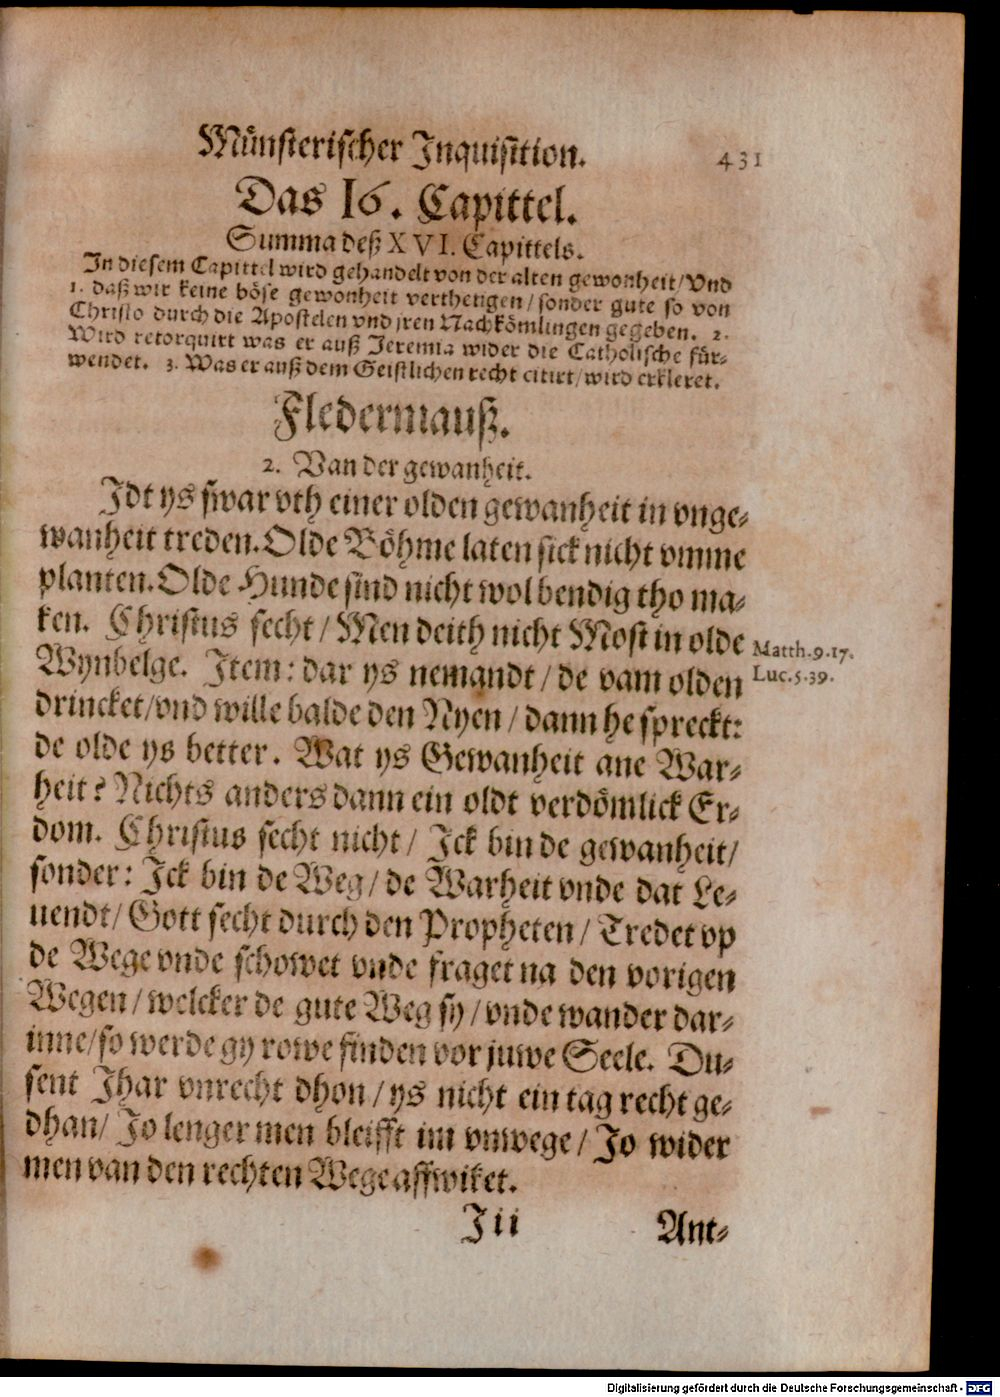 Münsterischer Inquisition. 431
Das 16. Capittel.
Summa deß XVI. Capittels.
In diesem Capittel wird gehandelt von der alten gewonheit/ Vnd
1. daß wir keine böse gewonheit verthetigen/ sonder gute so von
Christo durch die Apostelen vnd jren Nachkömlingen gegeben. 2.
Wird retorquirt was er auß Jeremia wider die Catholische für-
wendet. 3. Was er auß dem Geistlichen recht citirt/ wird erkleret.
Fledermauß.
2. Van der gewanheit.
Idt ys swar vth einer olden gewanheit in vnge-
wanheit treden. Olde Böhme laten sick nicht vmme
planten. Olde Hunde sind nicht wol bendig tho ma-
ken. Christus secht/ Men deith nicht Most in olde
Wynbelge. Item: dar ys nemandt/ de vam olden
drincket/ vnd wille balde den Nyen/ dann he spreckt:
de olde ys better. Wat ys Gewanheit ane War-
heit? Nichts anders dann ein oldt verdömlick Er-
dom. Christus secht nicht/ Ick bin de gewanheit/
sonder: Ick bin de Weg/ de Warheit vnde dat Le-
uendt/ Gott secht durch den Propheten/ Tredet vp
de Wege vnde schowet vnde fraget na den vorigen
Wegen/ welcker de gute Weg sy/ vnde wander dar-
inne/ so werde gy rowe finden vor juwe Seele. Du-
sent Jhar vnrecht dhon/ ys nicht ein tag recht ge-
dhan/ Jo lenger men bleifft im vnwege/ Jo wider
men van den rechten Wege affwiket.
Matth. 9. 17.
Luc. 5. 39.
Iii Ant-
Digitalisierung gefördert durch die Deutsche Forschungsgemeinschaft - DFG